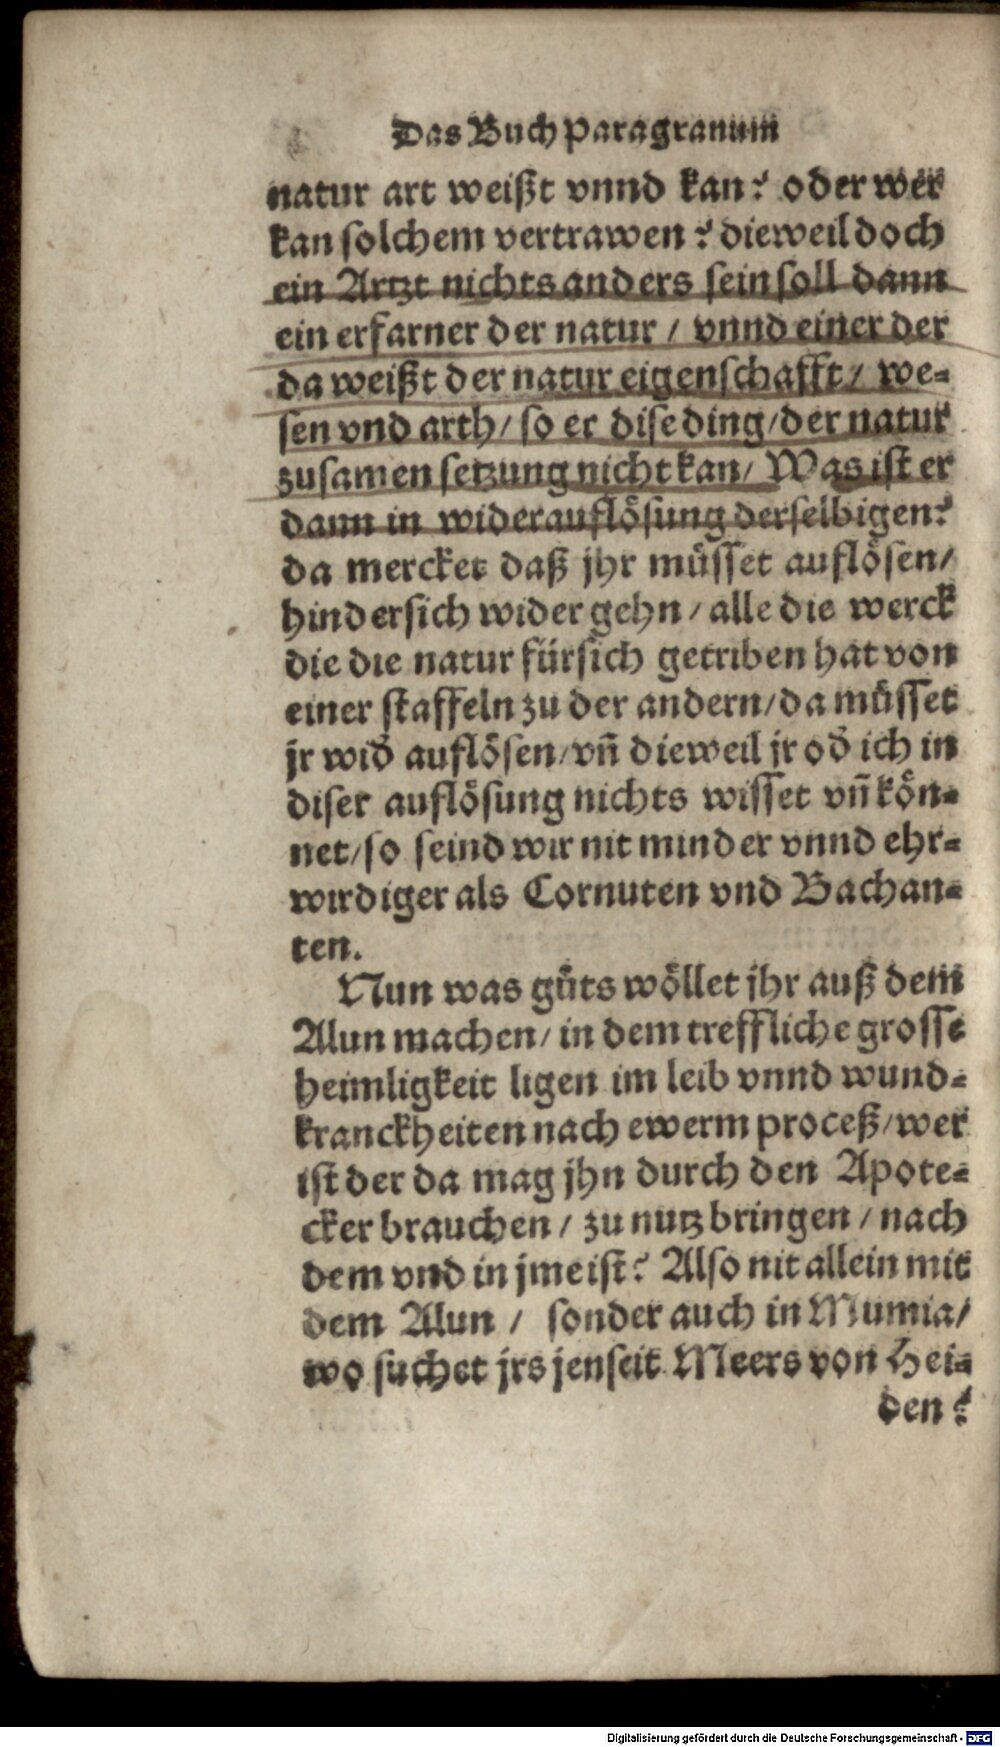 Das Buch Paragranum
natur art weißt vnnd kan? oder wer
kan solchem vertrawen? dieweil doch
ein Artzt nichts anders sein soll dann
ein erfarner der natur / vnnd einer der
da weißt der natur eigenschafft / we-
sen vnd arth / so er dise ding / der natur
zusamen setzung nicht kan / Was ist er
dann in widerauflösung derselbigen?
da mercket daß jhr müsset auflösen /
hindersich wider gehn / alle die werck
die die natur fürsich getriben hat von
einer staffeln zu der andern / da müsset
jr wid̄ auflösen / vn̄ dieweil jr od̄ ich in
diser auflösung nichts wisset vn̄ kön-
net / so seind wir nit minder vnnd ehr-
wirdiger als Cornuten vnd Bachan-
ten.
Nun was gůts wöllet jhr auß dem
Alun machen / in dem treffliche grosse
heimligkeit ligen im leib vnnd wund-
kranckheiten nach ewerm proceß / wer
ist der da mag jhn durch den Apote-
cker brauchen / zu nutz bringen / nach
dem vnd in jme ist? Also nit allein mit
dem Alun / sonder auch in Mumia /
wo suchet jrs jenseit Meers von Hei-
den?
Digitalisierung gefördert durch die Deutsche Forschungsgemeinschaft - DFG